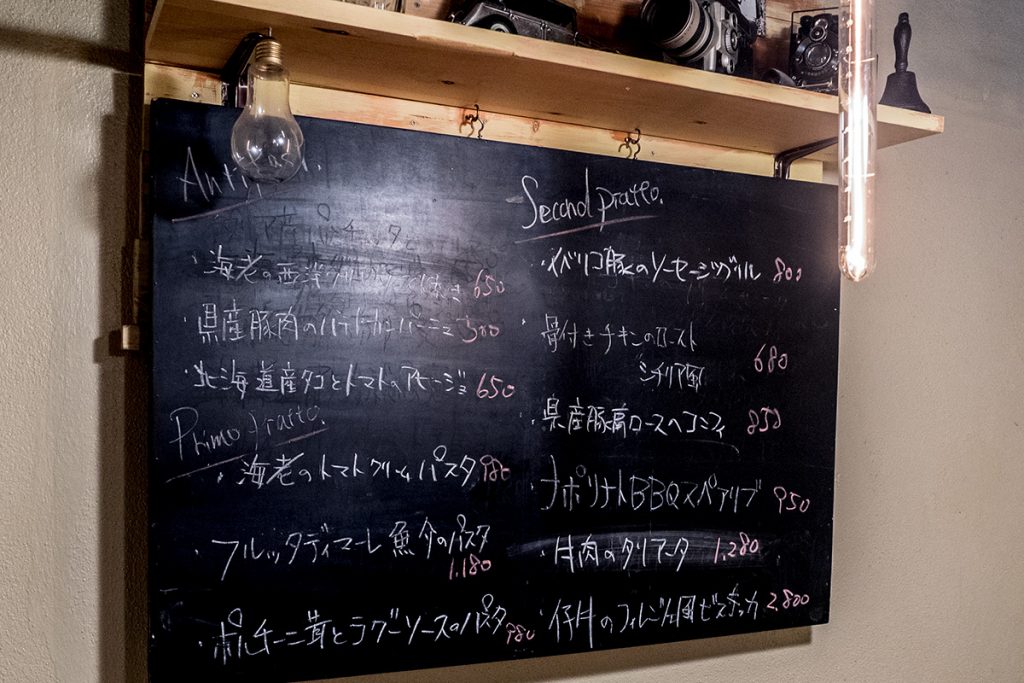 Anti
・海老の西洋 650
・県産豚肉の
・北海道産タコとトマトのアヒージョ 650
Primo Pratto.
・海老のトマトクリームパスタ 980
・フルッタディマーレ魚介のパスタ
1.180
・ポルチーニ茸とラグーソースのパスタ 980
Second pratto.
・イベリコ豚のソーセージグリル 800
・骨付きチキンのロースト
シチリア風 680
・県産豚肩ロースへコンフィ 850
・ナポリナトBBQスペアリブ 950
・牛肉のタリアータ 1.280
・仔牛の 風ビステッカ 2.800